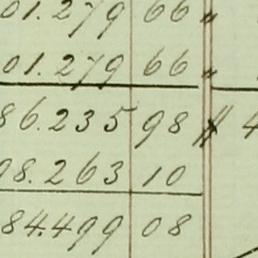 01.279 66 "
01.279 66 "
86.235 98 $ 4
98.263 10
84.499 08